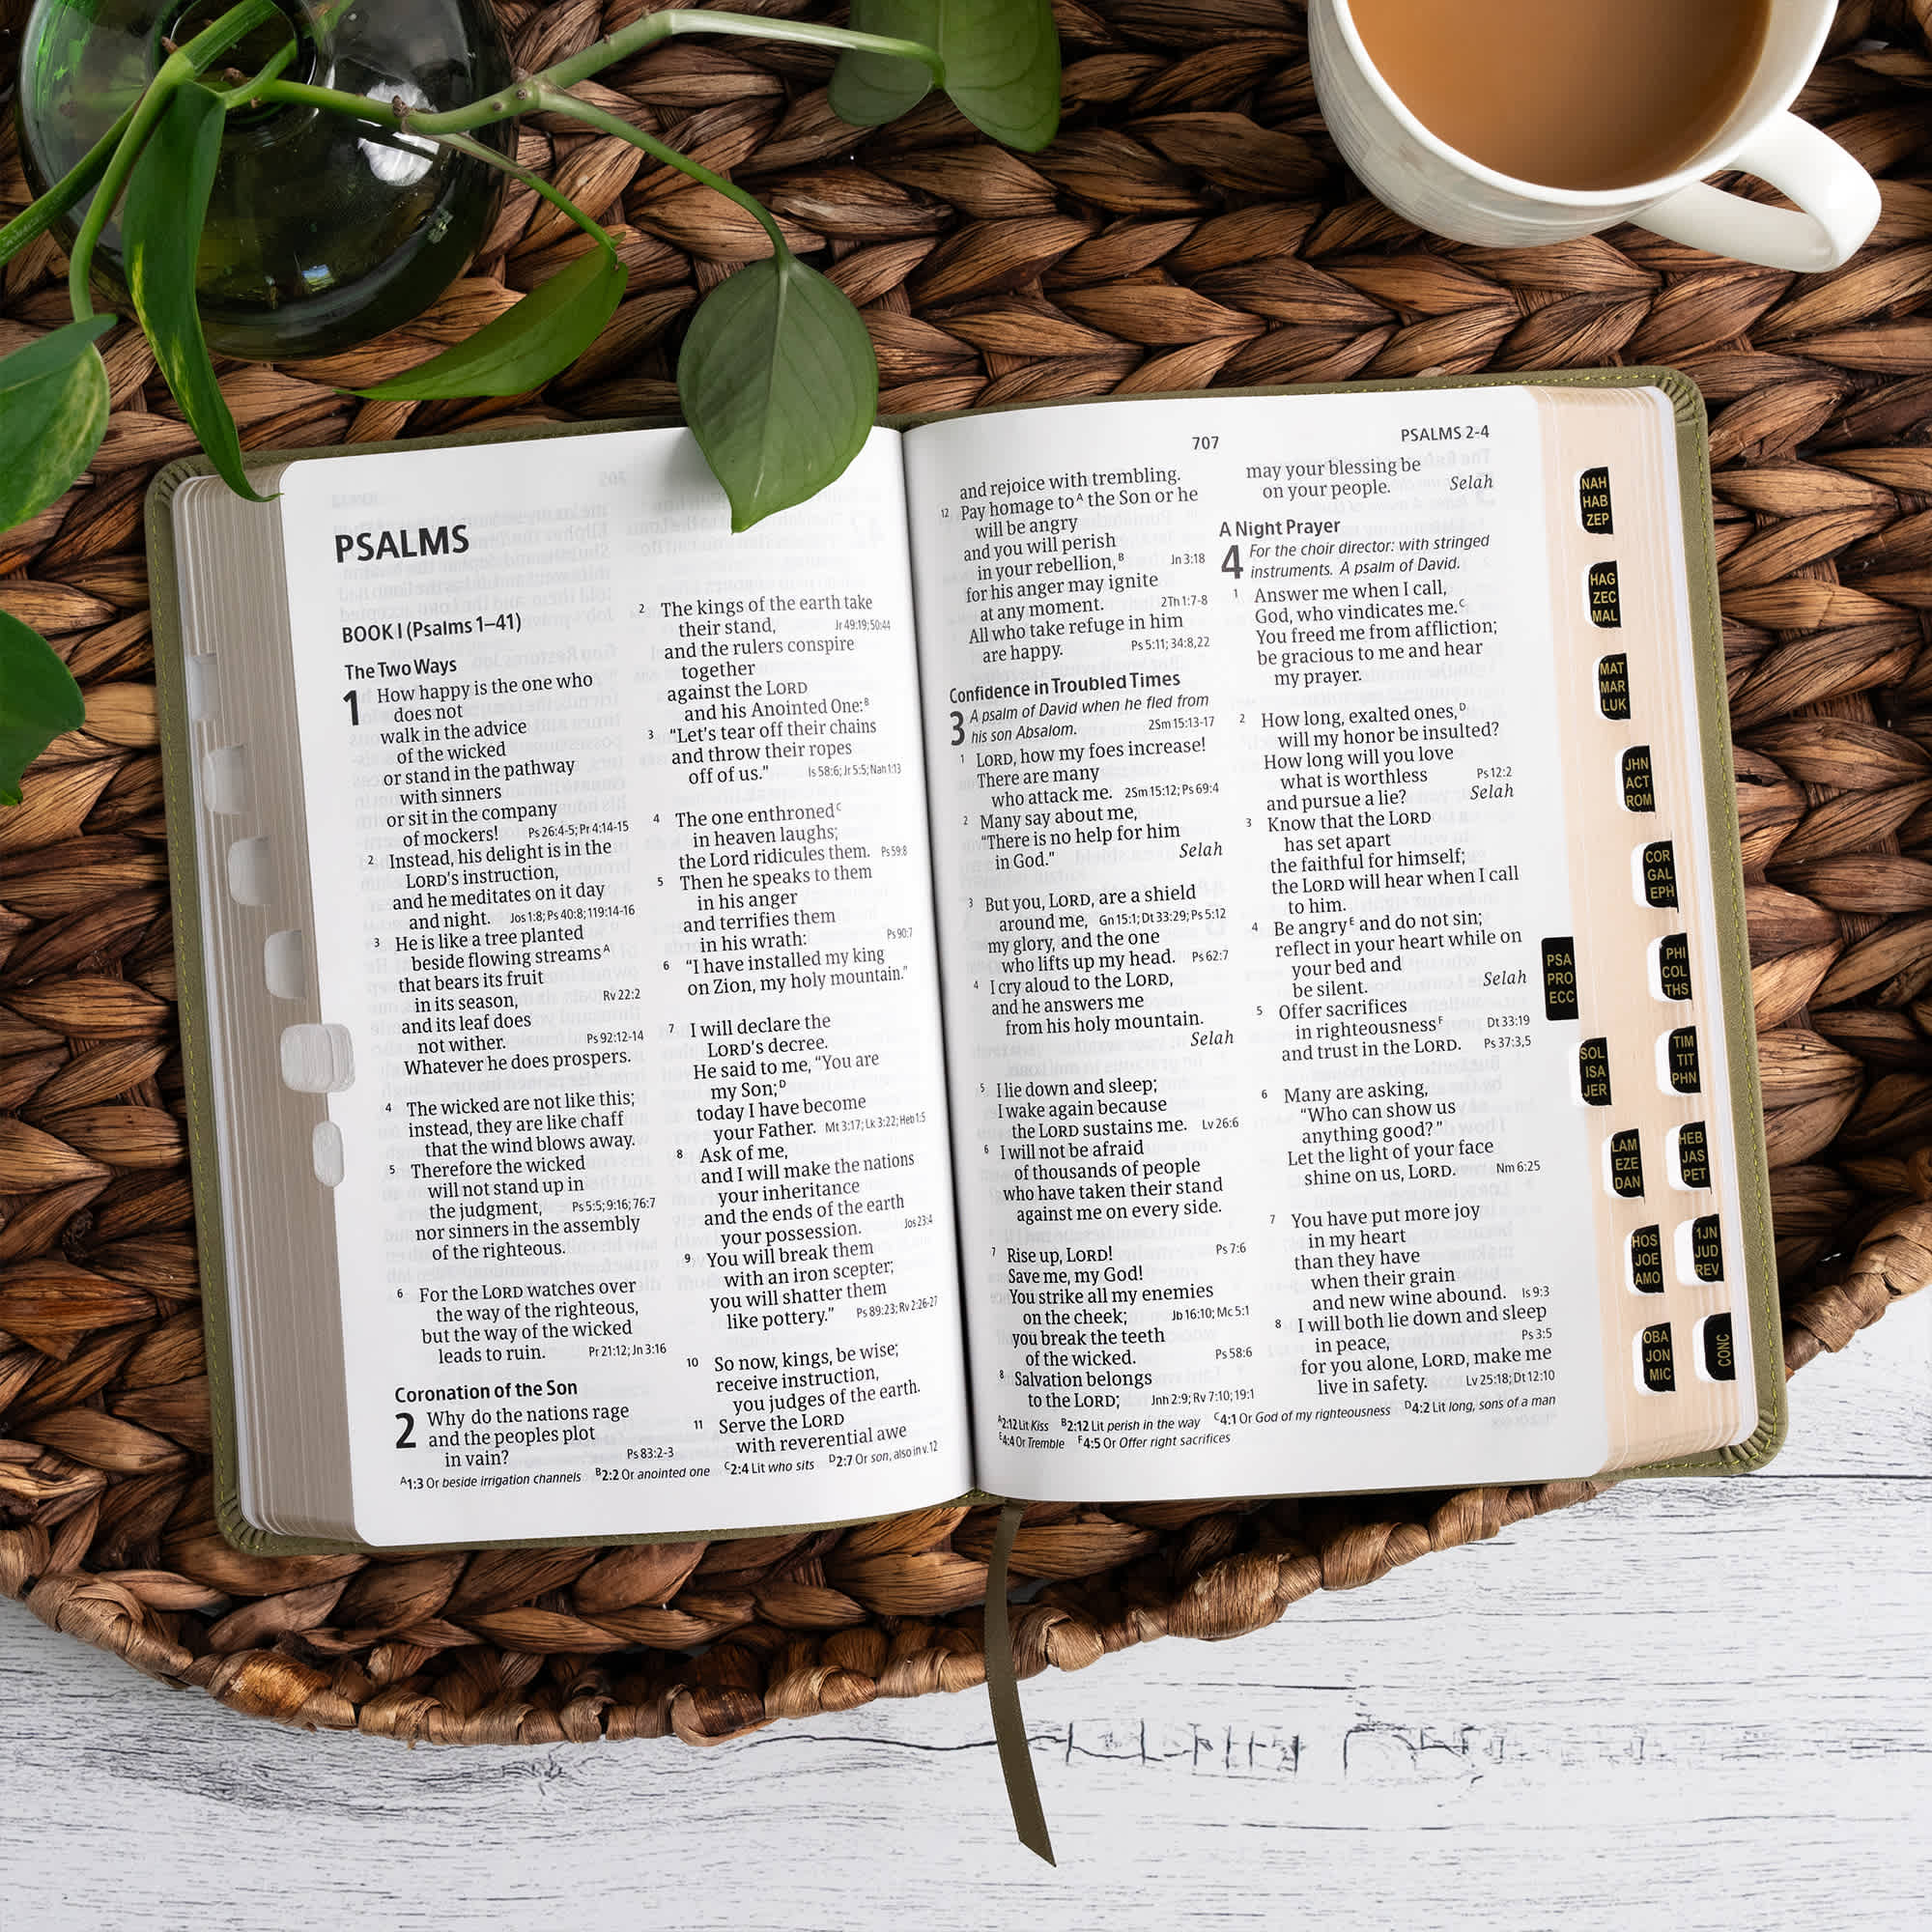 PSALMS
BOOK I (Psalms 1–41)
The Two Ways
1 How happy is the one who
does not
walk in the advice
of the wicked
or stand in the pathway
with sinners
or sit in the company
of mockers! Ps 26:4-5; Pr 4:14-15
2 Instead, his delight is in the
LORD's instruction,
and he meditates on it day
and night. Jos 1:8; Ps 40:8; 119:14-16
3 He is like a tree planted
beside flowing streams A
that bears its fruit
in its season, Rv 22:2
and its leaf does
not wither. Ps 92:12-14
Whatever he does prospers.
4 The wicked are not like this;
instead, they are like chaff
that the wind blows away.
5 Therefore the wicked
will not stand up in
the judgment, Ps 5:5; 9:16; 76:7
nor sinners in the assembly
of the righteous.
6 For the LORD watches over
the way of the righteous,
but the way of the wicked
leads to ruin. Pr 21:12; Jn 3:16
Coronation of the Son
2 Why do the nations rage
and the peoples plot
in vain? Ps 83:2-3
2 The kings of the earth take
their stand, Jr 49:19; 50:44
and the rulers conspire
together
against the LORD
and his Anointed One: B
3 "Let's tear off their chains
and throw their ropes
off of us." Is 58:6; Jr 5:5; Nah 1:13
4 The one enthroned C
in heaven laughs;
the Lord ridicules them. Ps 59:8
5 Then he speaks to them
in his anger
and terrifies them
in his wrath: Ps 90:7
6 "I have installed my king
on Zion, my holy mountain."
7 I will declare the
LORD's decree.
He said to me, "You are
my Son; D
today I have become
your Father. Mt 3:17; Lk 3:22; Heb 1:5
8 Ask of me,
and I will make the nations
your inheritance
and the ends of the earth
your possession. Jos 23:4
9 You will break them
with an iron scepter;
you will shatter them
like pottery." Ps 89:23; Rv 2:26-27
10 So now, kings, be wise;
receive instruction,
you judges of the earth.
11 Serve the LORD
with reverential awe
A 1:3 Or beside irrigation channels B 2:2 Or anointed one C 2:4 Lit who sits D 2:7 Or son, also in v. 12
707 PSALMS 2-4
and rejoice with trembling.
12 Pay homage to A the Son or he
will be angry
and you will perish
in your rebellion, B Jn 3:18
for his anger may ignite
at any moment. 2Th 1:7-8
All who take refuge in him
are happy. Ps 5:11; 34:8,22
Confidence in Troubled Times
3 A psalm of David when he fled from
his son Absalom. 2Sm 15:13-17
1 LORD, how my foes increase!
There are many
who attack me. 2Sm 15:12; Ps 69:4
2 Many say about me,
"There is no help for him
in God." Selah
3 But you, LORD, are a shield
around me, Gn 15:1; Dt 33:29; Ps 5:12
my glory, and the one
who lifts up my head. Ps 62:7
4 I cry aloud to the LORD,
and he answers me
from his holy mountain.
Selah
5 I lie down and sleep;
I wake again because
the LORD sustains me. Lv 26:6
6 I will not be afraid
of thousands of people
who have taken their stand
against me on every side.
7 Rise up, LORD! Ps 7:6
Save me, my God!
You strike all my enemies
on the cheek; Jb 16:10; Mc 5:1
you break the teeth
of the wicked. Ps 58:6
8 Salvation belongs
to the LORD; Jnh 2:9; Rv 7:10; 19:1
may your blessing be
on your people. Selah
A Night Prayer
4 For the choir director: with stringed
instruments. A psalm of David.
1 Answer me when I call,
God, who vindicates me. C
You freed me from affliction;
be gracious to me and hear
my prayer.
2 How long, exalted ones, D
will my honor be insulted?
How long will you love
what is worthless Ps 12:2
and pursue a lie? Selah
3 Know that the LORD
has set apart
the faithful for himself;
the LORD will hear when I call
to him.
4 Be angry E and do not sin;
reflect in your heart while on
your bed and
be silent. Selah
5 Offer sacrifices
in righteousness F Dt 33:19
and trust in the LORD. Ps 37:3,5
6 Many are asking,
"Who can show us
anything good?"
Let the light of your face
shine on us, LORD. Nm 6:25
7 You have put more joy
in my heart
than they have
when their grain
and new wine abound. Is 9:3
8 I will both lie down and sleep
in peace, Ps 3:5
for you alone, LORD, make me
live in safety. Lv 25:18; Dt 12:10
A 2:12 Lit Kiss B 2:12 Lit perish in the way C 4:1 Or God of my righteousness D 4:2 Lit long, sons of a man
E 4:4 Or Tremble F 4:5 Or Offer right sacrifices
PSA
PRO
ECC
SOL
ISA
JER
LAM
EZE
DAN
HOS
JOE
AMO
OBA
JON
MIC
NAH
HAB
ZEP
HAG
ZEC
MAL
MAT
MAR
LUK
JHN
ACT
ROM
COR
GAL
EPH
PHI
COL
THS
TIM
TIT
PHN
HEB
JAS
PET
1JN
JUD
REV
CONC